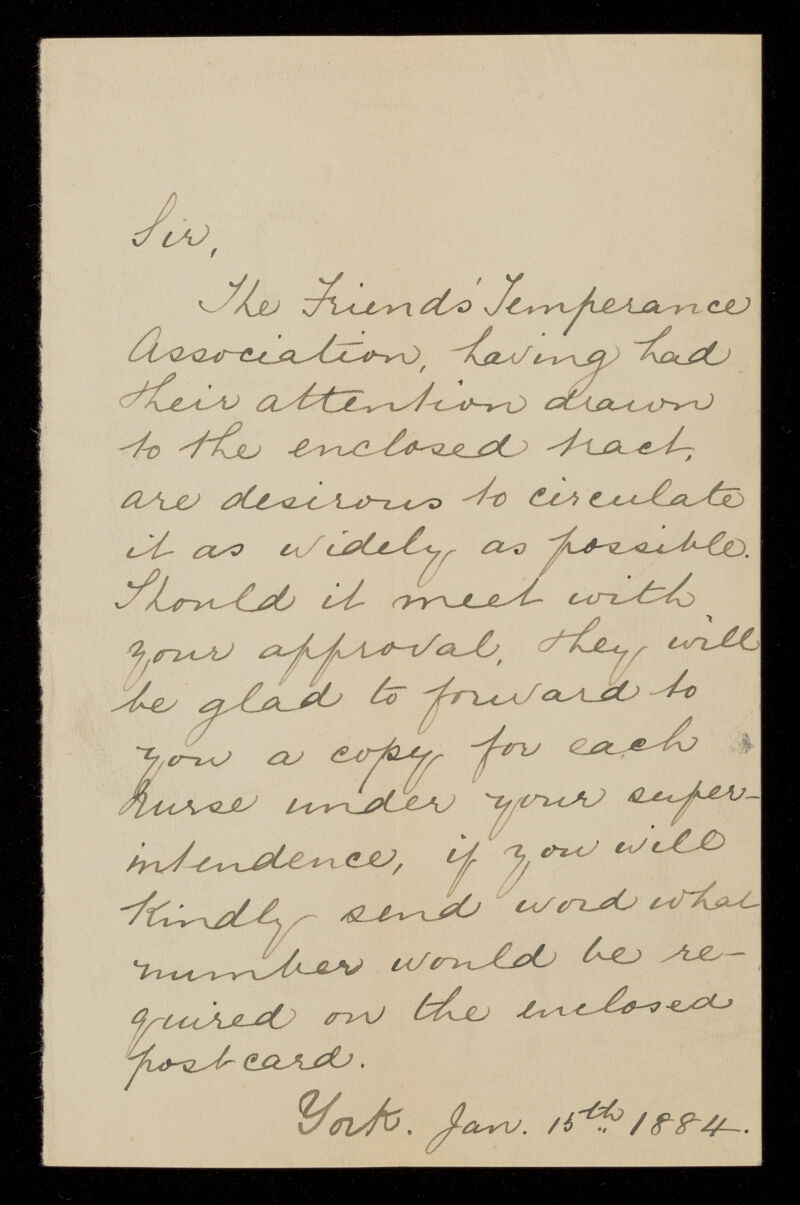 Sir,
The Friends' Temperance
Association, having had
their attention drawn
to the enclosed tract,
are desirous to circulate
it as widely as possible.
Should it meet with
your approval, they will
be glad to forward to
you a copy for each
nurse under your super-
intendence, if you will
kindly send word what
number would be re-
quired on the enclosed
post card.
York. Jan. 15th 1884.